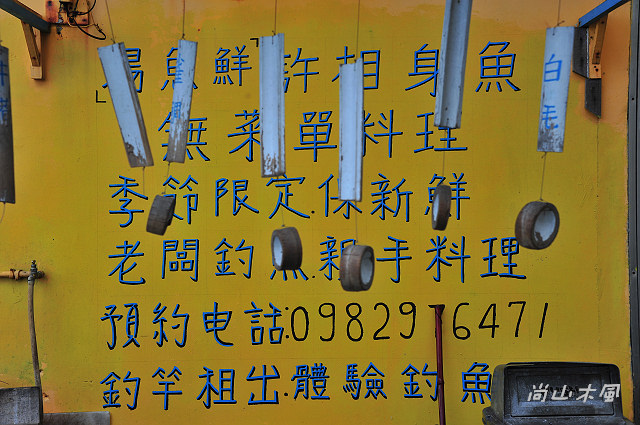 「場魚鮮」許相身魚
無菜單料理
季節限定.保新鮮
老闆釣魚親手料理
預約电話:0982916471
釣竿租出.體驗釣魚
白毛
尚山木風